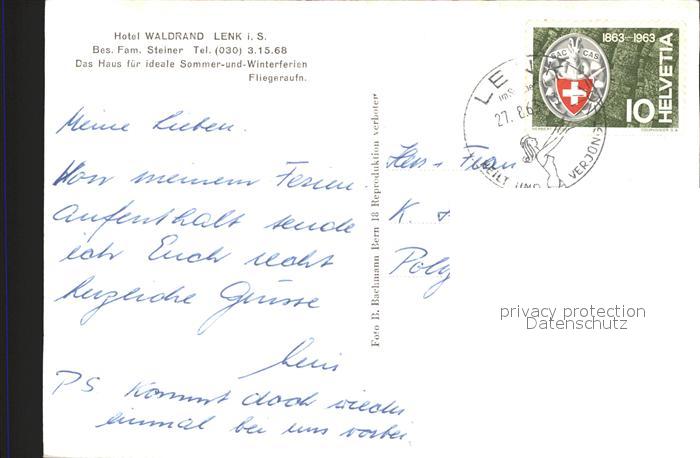 Hotel WALDRAND LENK i. S.
Bes. Fam. Steiner Tel. (030) 3.15.68
Das Haus für ideale Sommer-und-Winterferien
Fliegeraufn.
Meine Lieben.
Von meinem Ferien-
aufenthalt sende
ich Euch recht
herzliche Grüsse
PS Kommt doch wieder
einmal bei uns vorbei.
Foto B. Bachmann Bern 18 Reproduktion verboten
1863-1963
SAC CAS
HELVETIA
10
COURVOISIER S.A.
27. 8.63
HEILT UND VERJÜNGT
Herr + Frau
K. +
Poly
privacy protection
Datenschutz